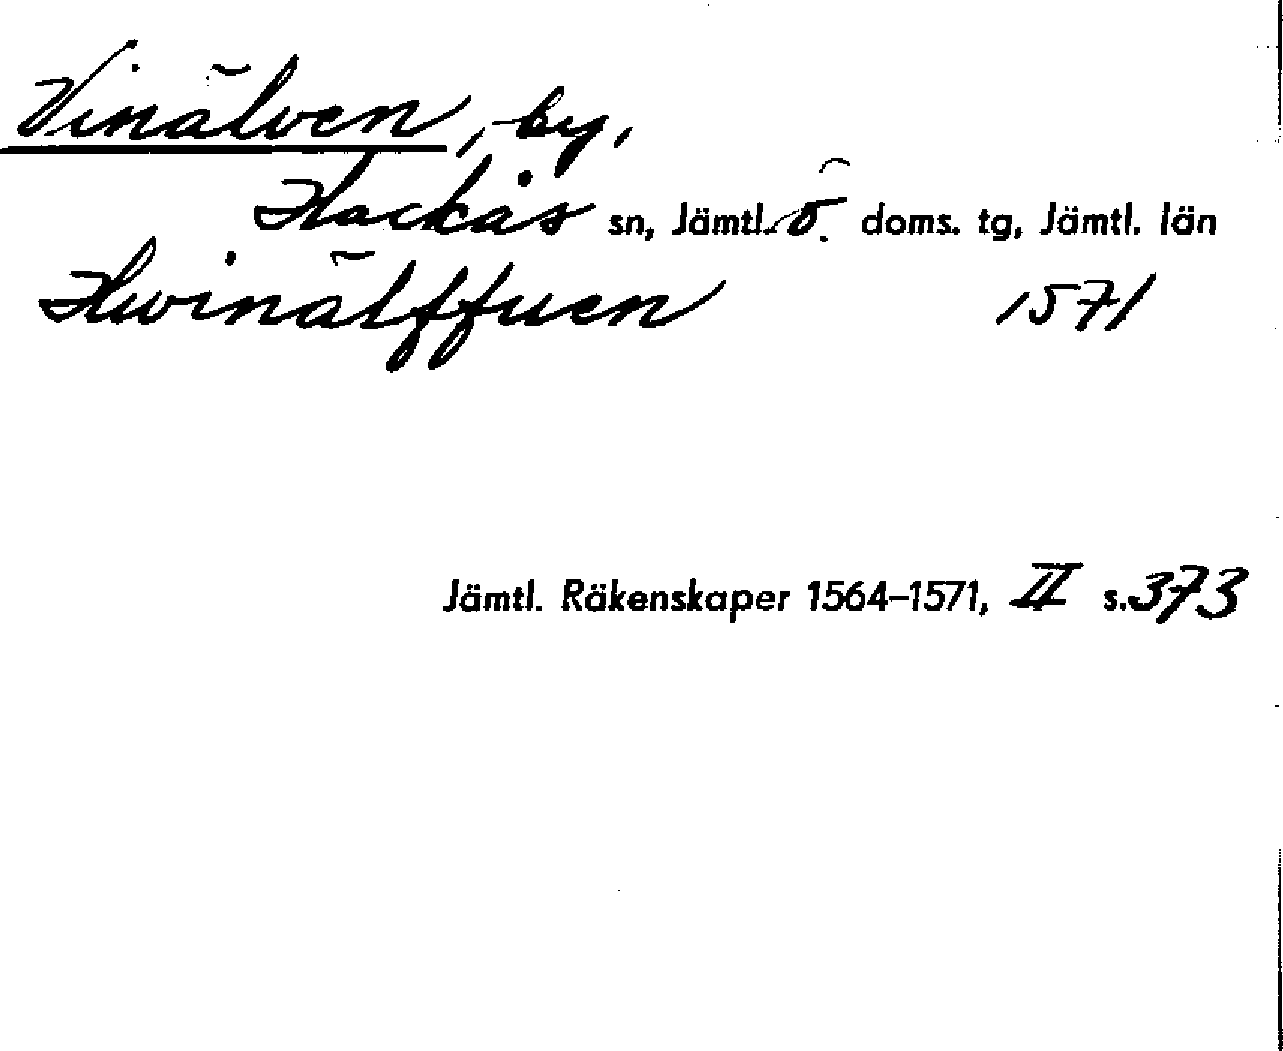 Vinälven, by,
Hackås sn, Jämtl. ö. doms. tg, Jämtl. län
Hwinälffuen 1571
Jämtl. Räkenskaper 1564–1571, II s. 373